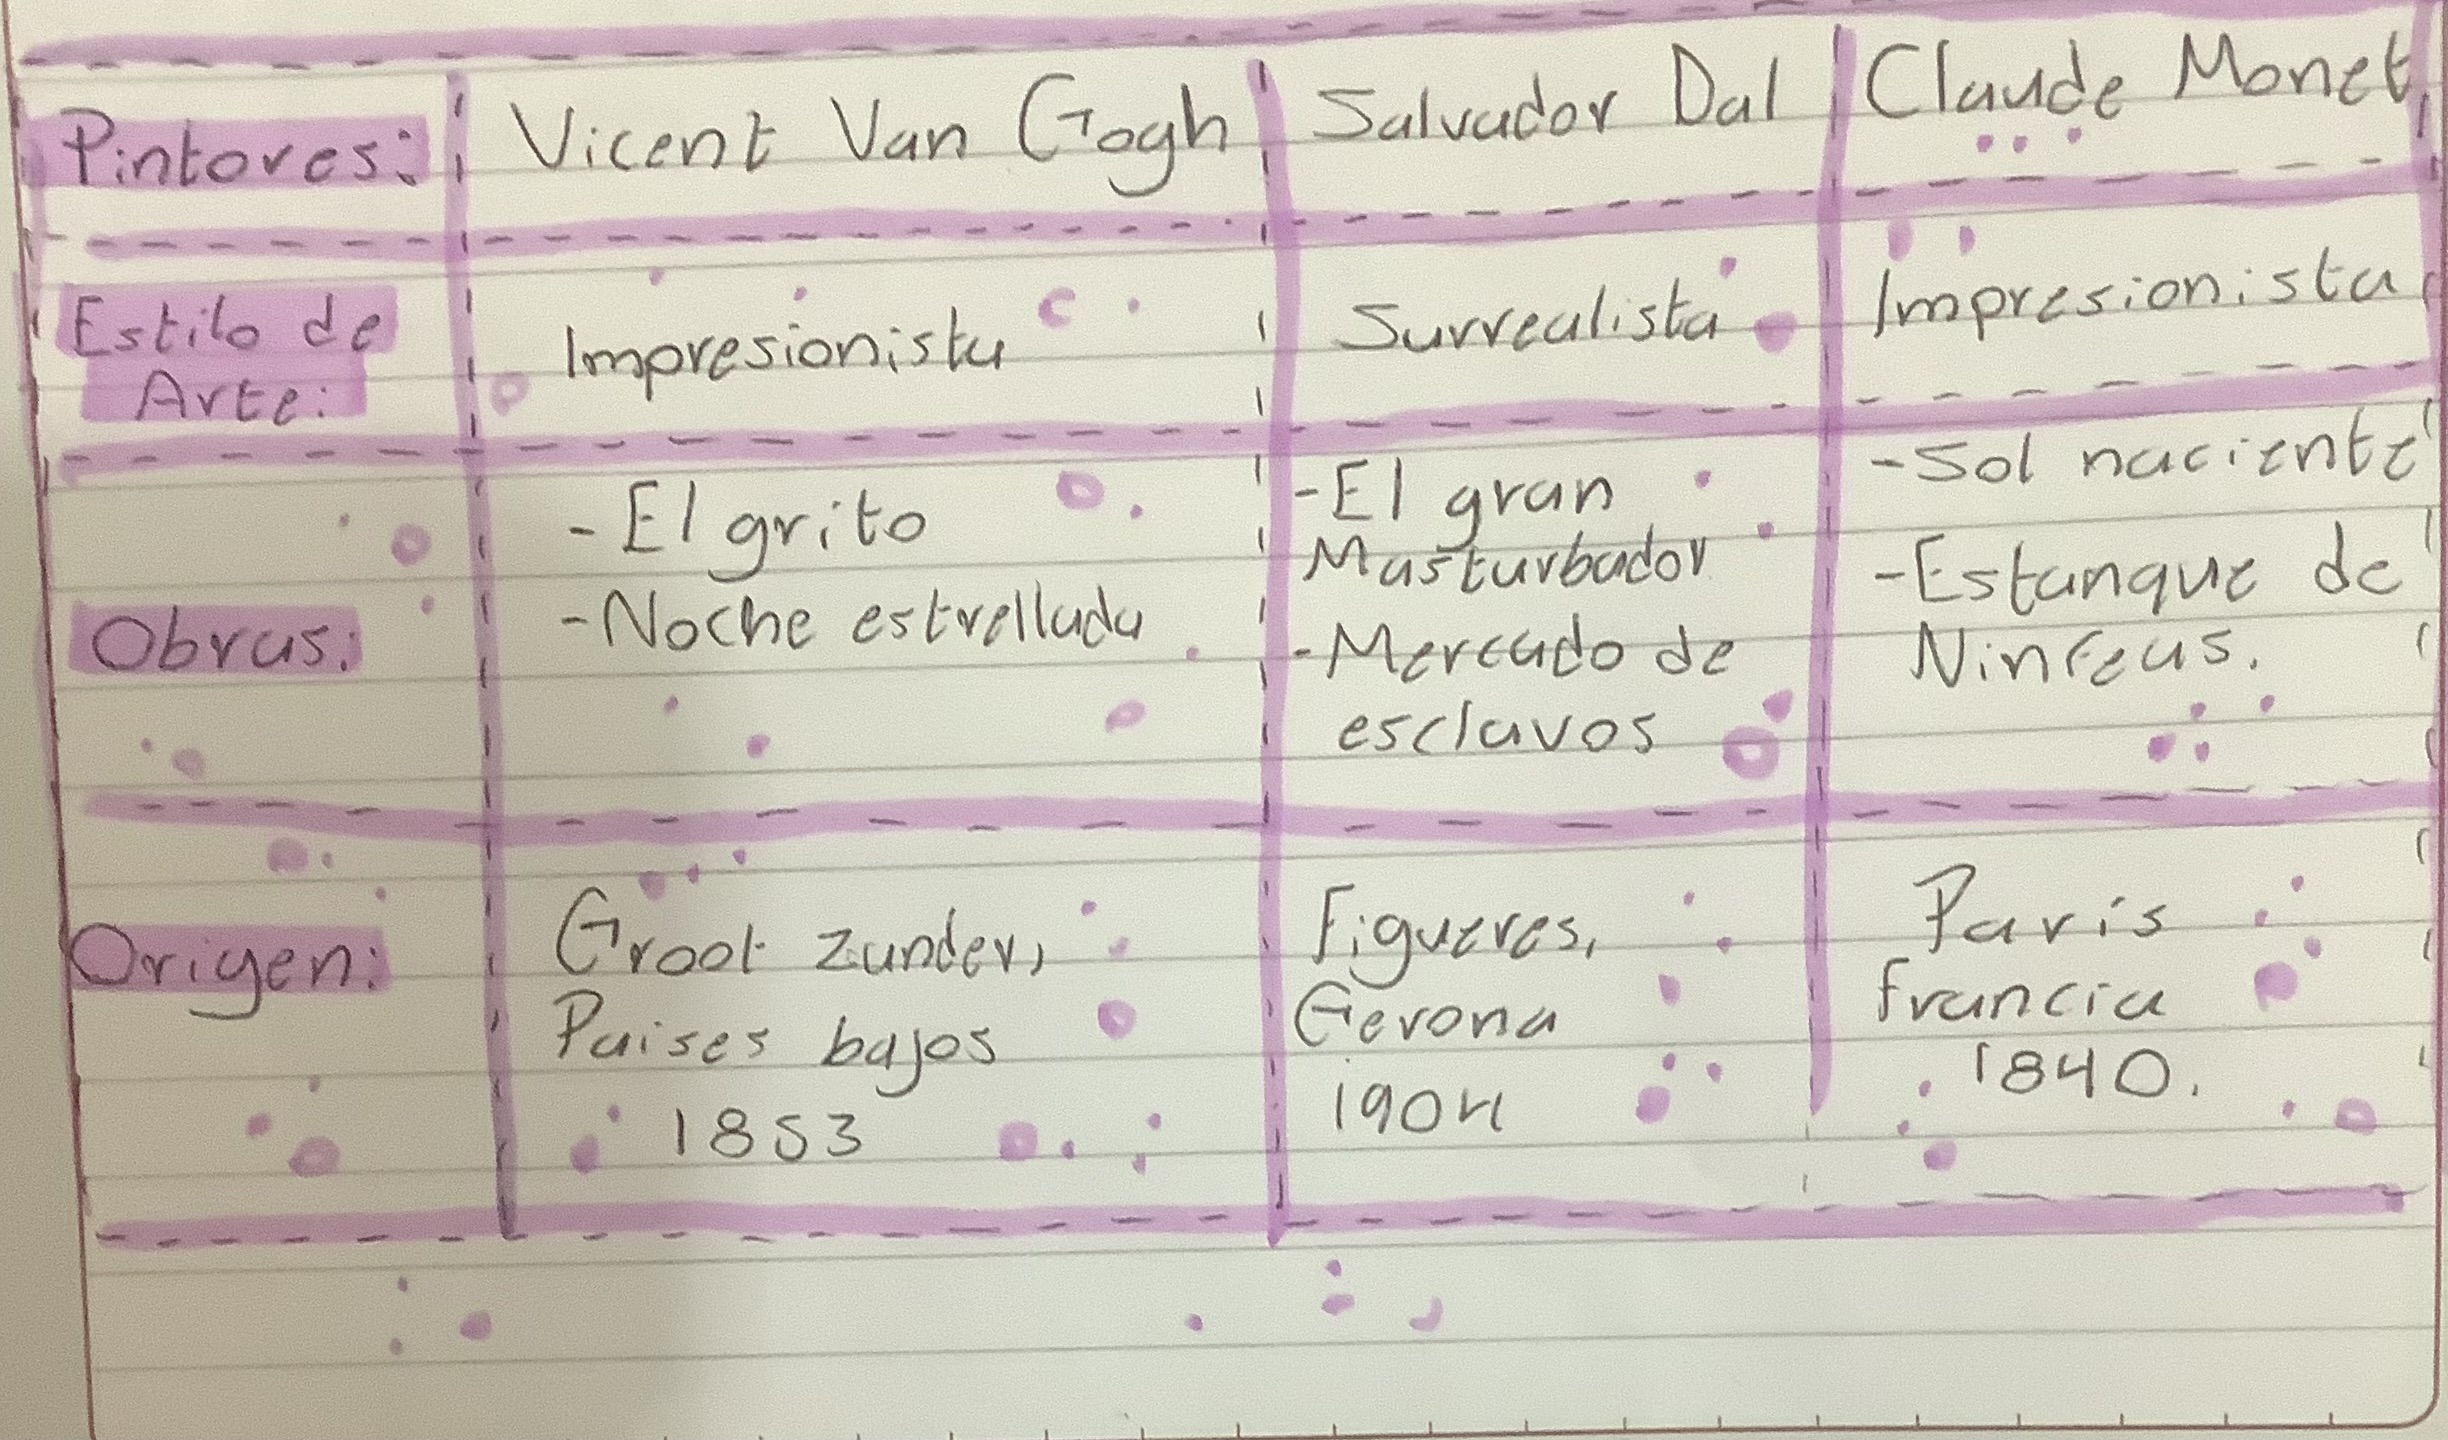 Pintores: Vicent Van Gogh Salvador Dal Claude Monet
Estilo de Arte: Impresionista Surrealista Impresionista
Obras:
- El grito
- Noche estrellada
- El gran
Masturbador
- Mercado de
esclavos
- Sol naciente
- Estanque de
Ninfeas.
Origen:
Groot zunder,
Paises bajos
1853
Figueres,
Gerona
1904
Paris
francia
1840.